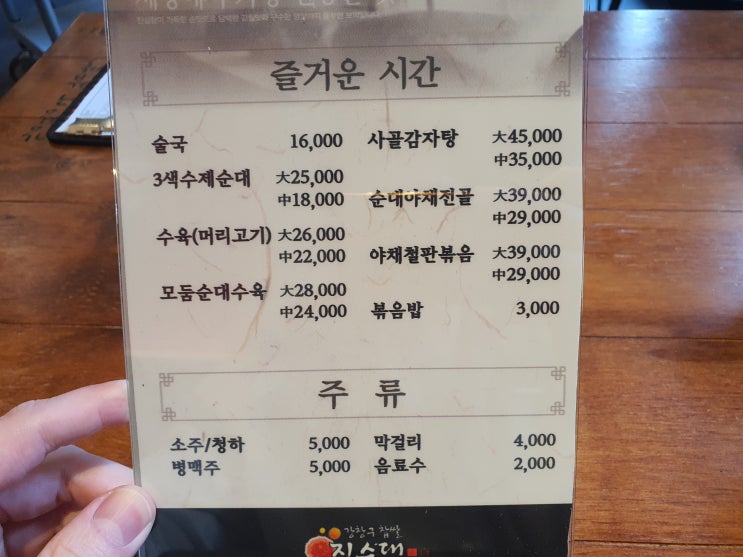 즐거운 시간
술국 16,000
3색수제순대 大25,000
中18,000
수육(머리고기) 大26,000
中22,000
모둠순대수육 大28,000
中24,000
사골감자탕 大45,000
中35,000
순대야채전골 大39,000
中29,000
야채철판볶음 大39,000
中29,000
볶음밥 3,000
주 류
소주/청하 5,000
병맥주 5,000
막걸리 4,000
음료수 2,000
강창구 찹쌀
진순대